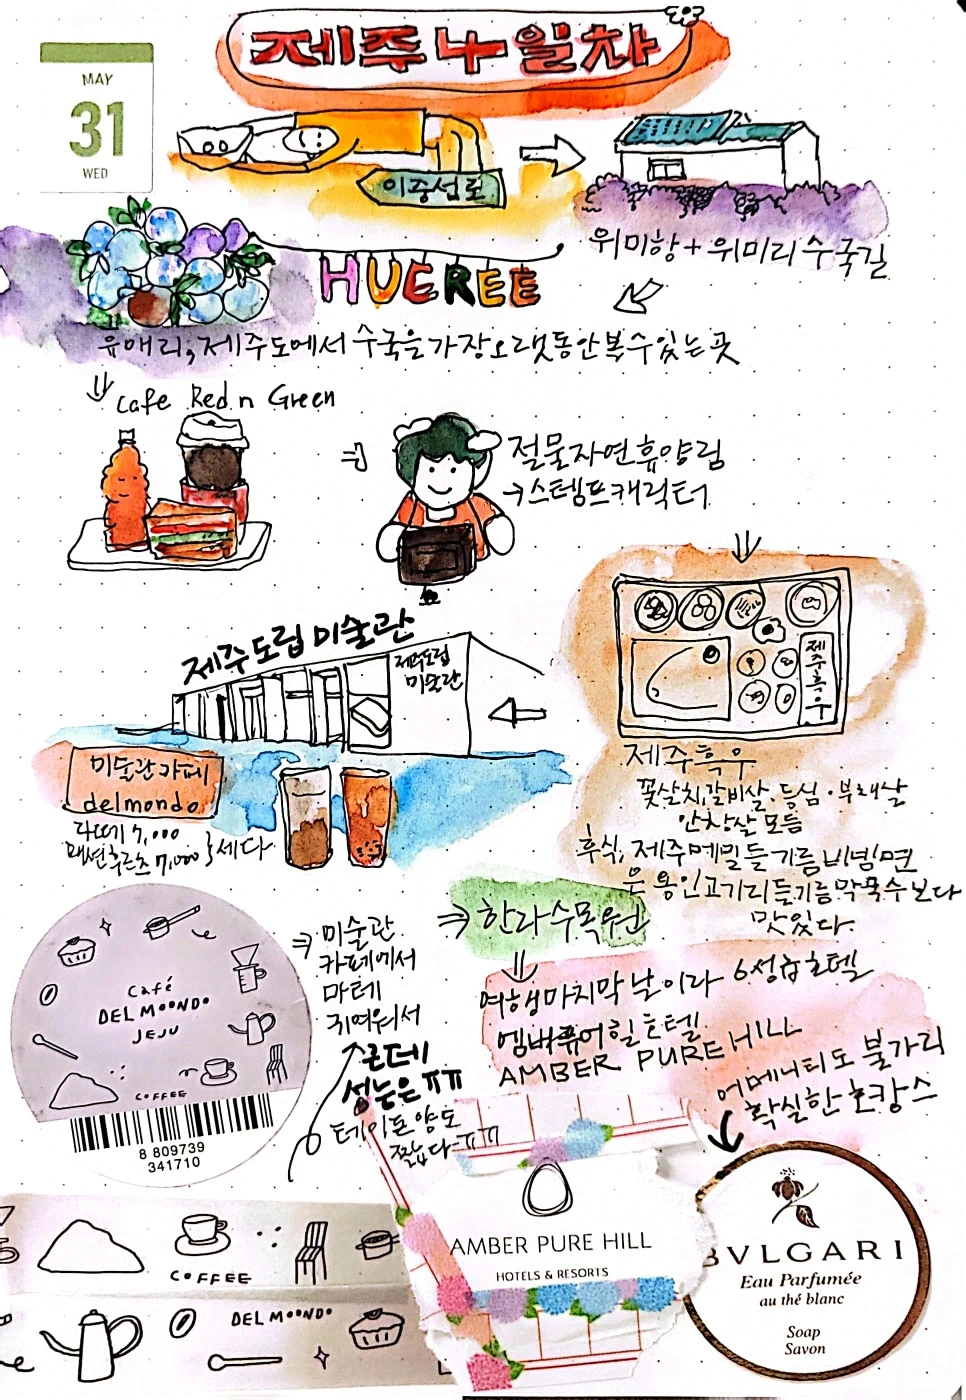 제주4일차
MAY
31
WED
이중섭로
위미항+위미리수국길
HUEREE
휴애리;제주도에서 수국을 가장오랫동안볼수있는곳
cafe Red n Green
절물자연휴양림
→스템프캐릭터
제주도립미술관
제주도립
미술관
제주흑우
미술관카페
delmondo
라떼 7,000
패션후르츠 7,000 } 세다
제주흑우
꽃살치,갈비살.등심.부채살
안창살모듬
후식,제주메밀들기름비빔면
은 용인고기리들기름막국수보다
맛있다.
한라수목원
여행마지막날이라 6성급호텔
엠버퓨어힐호텔
AMBER PURE HILL
어메니티도 불가리
확실한호캉스
미술관
카페에서
마테
귀여워서
근데
성능은ㅠㅠ
테이프양도
짧다ㅠㅠ
Café
DELMOONDO
JEJU
COFFEE
8 809739
341710
COFFEE
DELMOONDO
AMBER PURE HILL
HOTELS & RESORTS
BVLGARI
Eau Parfumée
au thé blanc
Soap
Savon